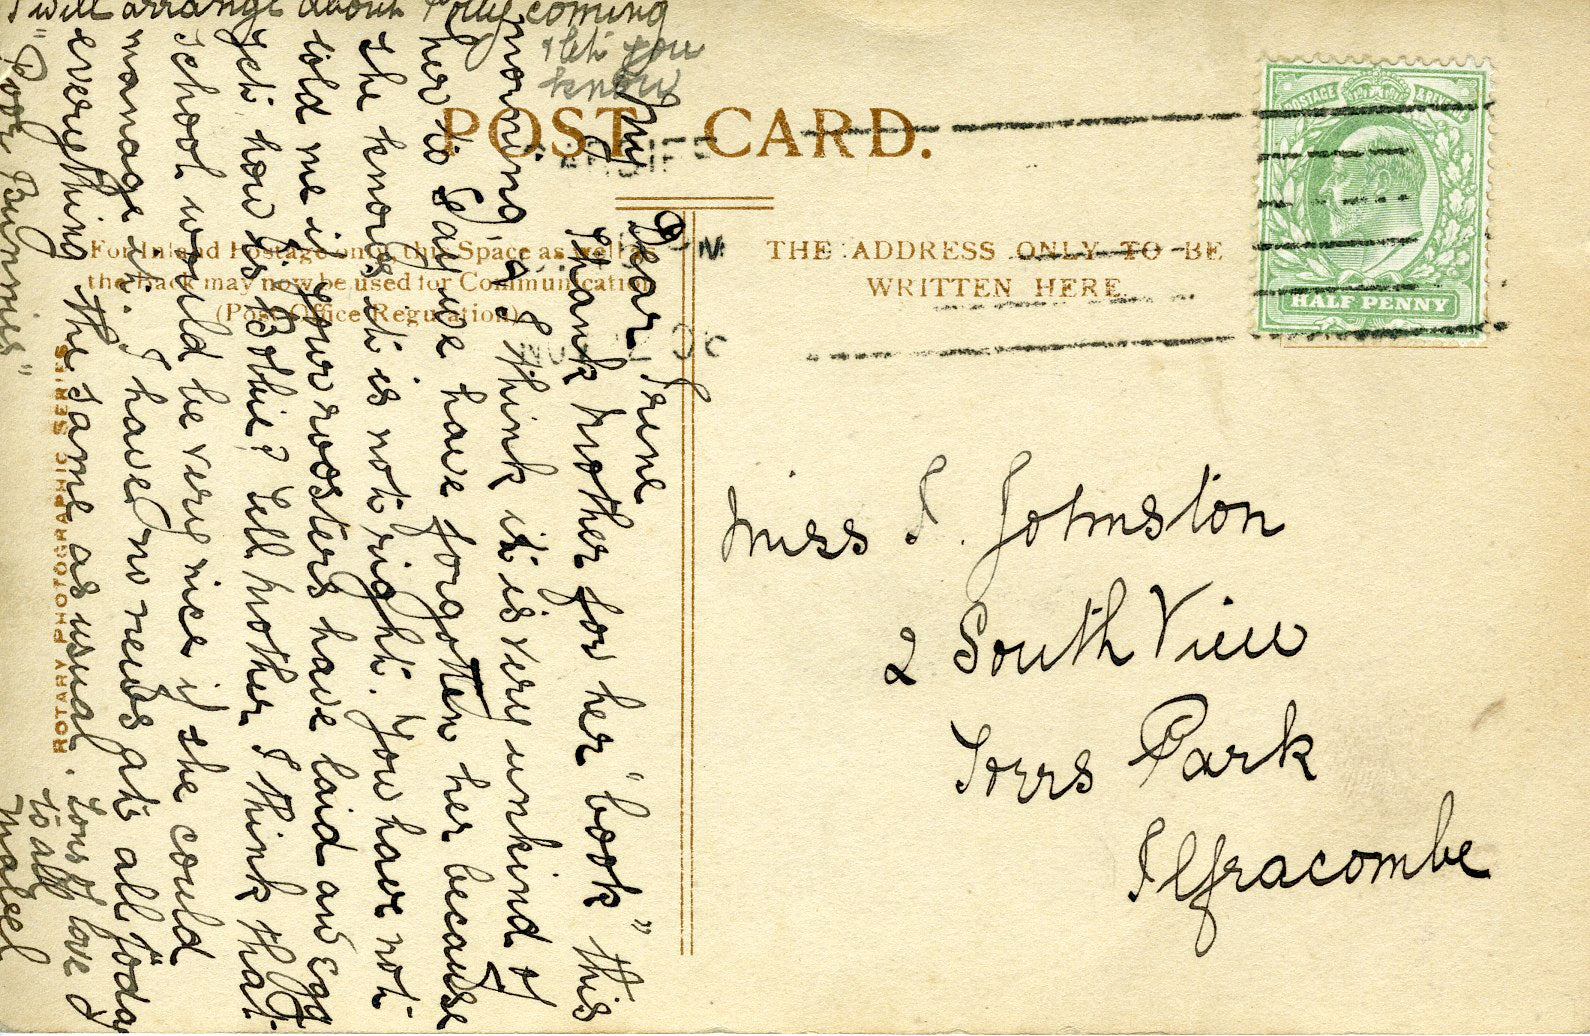 I will arrange about Polly coming
& let you
know
POST CARD.
CARDIFF
For Inland Postage only, this Space as well as
the Back may now be used for Communication.
(Post Office Regulation)
THE ADDRESS ONLY TO BE
WRITTEN HERE.
HALF PENNY
POSTAGE
ROTARY PHOTOGRAPHIC SERIES
My
Dear Irene
Thank Mother for her "book" this
morning, I think it is very unkind of
her to say we have forgotten her because
she knows it is not right. You have not
told me if your roosters have laid an egg
yet. how is Bobbie? Tell Mother I think that
school would be very nice if she could
manage it. I have no news at all today
everything the same as usual.
Tons of love
to all
Mabel
"Poor Bunnies"
Miss I. Johnston
2 South View
Torrs Park
Ilfracombe